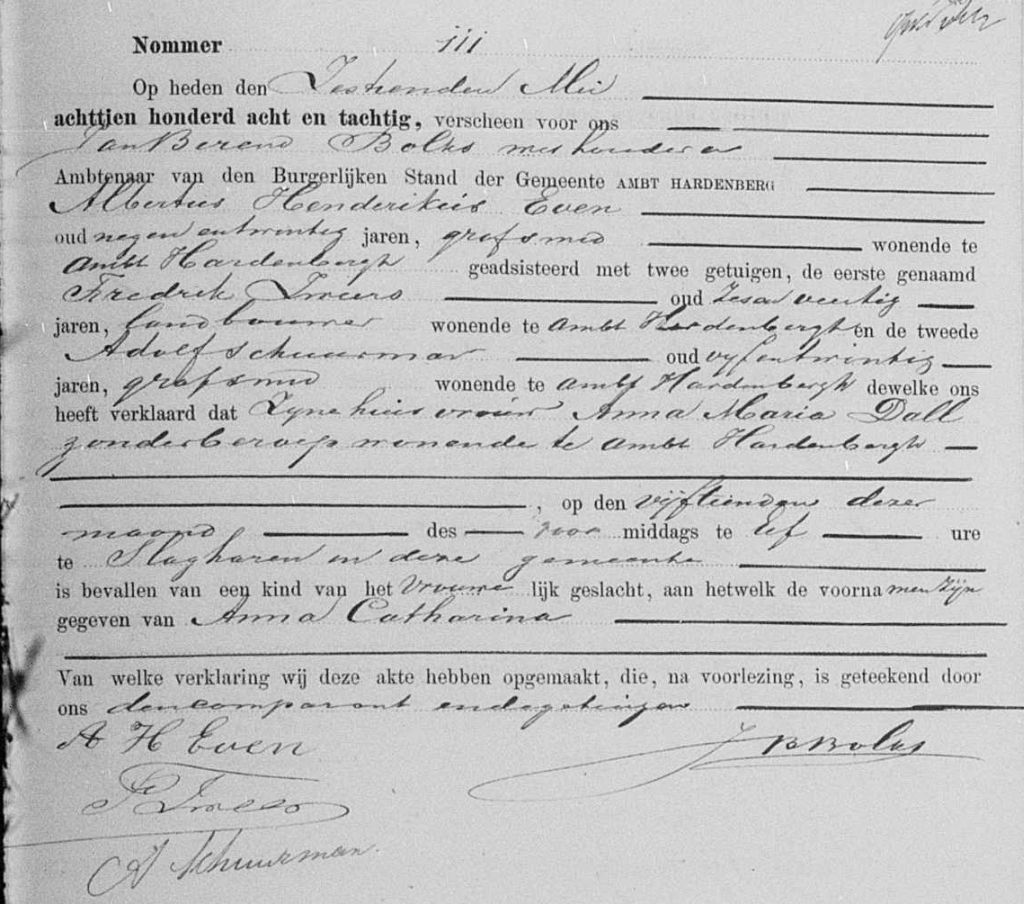 Nommer 111
Op heden den Zestienden Mei
achttien honderd acht en tachtig, verscheen voor ons
Jan Berend Bolks wethouder
Ambtenaar van den Burgerlijken Stand der Gemeente AMBT HARDENBERG
Albertus Henderikus Even
oud negen entwintig jaren, grofsmid wonende te
Ambt Hardenbergh geadsisteerd met twee getuigen, de eerste genaamd
Fredrik oud veertig
jaren, landbouwer wonende te Ambt Hardenbergh en de tweede
Adolf schuurman oud vyf entwintig
jaren, grofsmid wonende te Ambt Hardenbergh dewelke ons
heeft verklaard dat Zyne huisvrouw Anna Maria Dall
zonder beroep wonende te Ambt Hardenbergh
, op den vijftienden dezer
maand des voor middags te elf ure
te Slagharen in deze gemeente
is bevallen van een kind van het Vrouwe lijk geslacht, aan hetwelk de voorna men zijn
gegeven van Anna Catharina
Van welke verklaring wij deze akte hebben opgemaakt, die, na voorlezing, is geteekend door
ons den comparant en de getuigen
A H Even
J B Bolks
A Schuurman